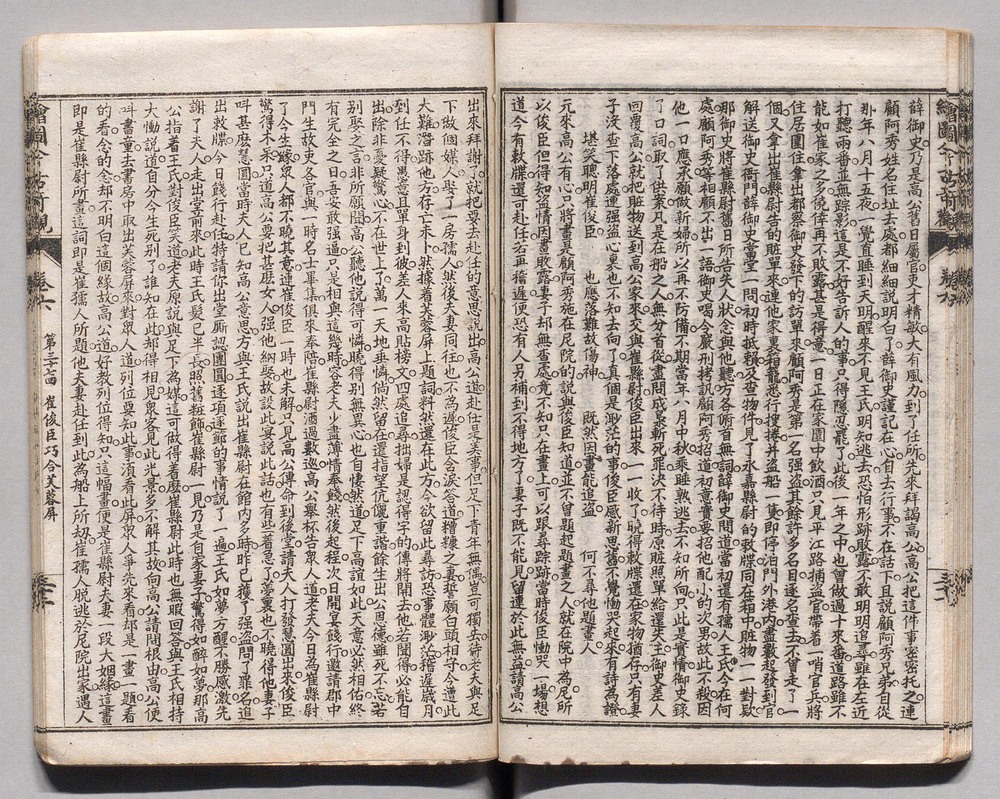 薛御史乃是高公舊日屬官吏才精敏大有風力到了任所先來拜謁高公高公把這件事密密托之連
顧阿秀姓名住址去處都細細說明白了薛御史謹記在心自去行事不在話下且說顧阿秀兄弟自從
那年八月十五夜一覺直睡到天明醒來不見了王氏明知逃去恐怕形跡敗露不敢明明追尋雖在左近
打聽兩番並無踪影這是不好告訴人的事只得隱忍罷了此後一年之中也曾做過十來番道路雖不
能如崔家之多僥倖再不敗露甚是得意一日正在家園中飲酒只見平江路捕盜官帶着一哨官兵將
住居圍住拿出都察御史發下的訪單來顧阿秀是第一名强盜其餘許多名目逐名查去不曾走了一
個又拿出崔縣尉告的賍單來連他家裏箱籠悉行搜捲并盜船一隻即停泊門外港內盡數起發到官
解送御史衙門薛御史當堂一問初時抵賴及查物件見了永嘉縣尉的敕牒尚在箱中賍物一一對欵
那御史將崔縣尉舊日所告失人狀念與他聽方各俯首無詞薛御史問道當初還有孺人王氏今在何
處顧阿秀等相顧不出一語御史喝令嚴刑拷訊顧阿秀招道初意實要招他配小的次男故此不殺因
他一口應承願做新婦所以再不防備不期當年八月中秋乘睡熟逃去不知所向只此是實情御史錄
了口詞取了供案凡是在船之人無分首從盡問成梟斬死罪決不待時原賍照單給還失主御史差人
回覆高公就把賍物送到高公家來交與崔縣尉俊臣出來一一收了曉得敕牒還在家物猶存只有妻
子沒查下落處連强盜心裏也不知去向了真個是渺茫的事俊臣感新思舊不覺慟哭起來有詩為證
堪笑聰明崔俊臣　也應落難故傷神　既然因畫能追盜　何不尋他題畫人
元來高公有心只將畫是顧阿秀施在尼院的說與俊臣知道並不曾題起題畫之人就在院中為尼所
以俊臣但得知盜情因畫敗露妻子却無查處竟不知只在畫上可以跟尋踪跡當時俊臣慟哭一場想
道今有敕牒還可赴任若再稽遲便恐有人另補到不得地方了妻子既不能見留連於此無益請高公
出來拜謝了就把要去赴任的意思說出高公道赴任是美事但足下青年無偶豈可獨去待老夫與足
下做個媒人娶了一房孺人然後夫妻同往也不為遲俊臣含淚答道糟糠之妻誓願白頭相守今遭此
大難流落他方存亡未卜然據着芙蓉屏上題詞料然還在此方今欲留此尋訪恐事體渺茫稽遲歲月
到任不得愚意且單身到彼差人來高貼榜文四處追尋拙婦是認得字的傳將開去他若聞得必能自
出除非憂疑驚心不在世上了萬一天地垂憐倘然留在還指望伉儷重諧餘生出公恩德雖死不忘若
別娶之言非所願聞高公聽他說得可憐曉得別無異心也自悽然道足下高誼如此天意必然相佑終
有完全之日吾安敢强逼只是相與這幾時容老夫少盡薄情奉餞然後起程次日開宴餞行邀請郡中
門生故吏各官與一時名士畢集俱來奉陪崔縣尉酒過數巡高公舉杯告眾人道老夫今日為崔縣尉
了今生緣眾人都不曉其意連崔俊臣一時也未解只見高公傳命到後堂請夫人打發慧圓出來俊臣
驚得木呆只道高公要把甚麽女人强他納娶故設此宴說此話也有些着急了夢裏也不曉得他妻子
叫甚麽慧圓當時夫人已知高公意思方與王氏說出崔縣尉在館內多時昨已獲了强盜問了罪名追
出敕牒今日餞行赴任特請你出堂厮認團圓逐項逐節的事情說了一遍王氏如夢方醒不勝感激先
謝了夫人走出堂前來此時王氏髮已半長照舊粧飾崔縣尉一見乃是自家妻子驚得如醉如夢那高
公指着王氏對俊臣笑道老夫原說與足下為媒這可做得着麽崔縣尉此時也無暇回答與王氏相持
大慟說道自分今生死別了誰知在此却得相見眾客見此光景多不解其故向高公請問根由高公便
叫書童去書房中取出芙蓉屏來對眾人道列位要知此事湏看此屏眾人爭先來看却是一畫一題看
的看念的念却不明白這個緣故高公道好教列位得知只這幅畫便是崔縣尉夫妻一段大姻緣這畫
即是崔縣尉所畫這詞即是崔孺人所題他夫妻赴任到此為船上所刼崔孺人脫逃於尼院出家遇人
繪圖今古奇觀
卷六
第三十四　崔俊臣巧合芙蓉屏